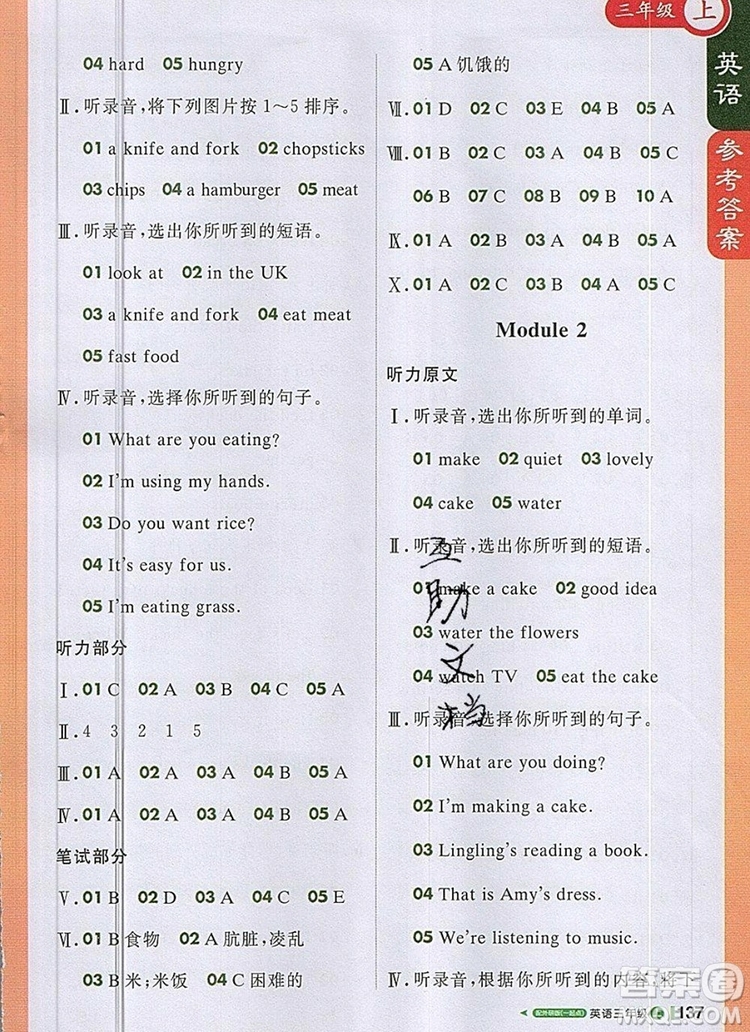 三年级 上
英语
参考答案
04 hard 05 hungry
Ⅱ.听录音,将下列图片按1～5排序。
01 a knife and fork 02 chopsticks
03 chips 04 a hamburger 05 meat
Ⅲ.听录音,选出你所听到的短语。
01 look at 02 in the UK
03 a knife and fork 04 eat meat
05 fast food
Ⅳ.听录音,选择你所听到的句子。
01 What are you eating?
02 I'm using my hands.
03 Do you want rice?
04 It's easy for us.
05 I'm eating grass.
听力部分
Ⅰ.01 C 02 A 03 B 04 C 05 A
Ⅱ.4 3 2 1 5
Ⅲ.01 A 02 A 03 A 04 B 05 A
Ⅳ.01 A 02 A 03 A 04 B 05 A
笔试部分
Ⅴ.01 B 02 D 03 A 04 C 05 E
Ⅵ.01 B 食物 02 A 肮脏,凌乱
03 B 米;米饭 04 C 困难的
05 A 饥饿的
Ⅶ.01 D 02 C 03 E 04 B 05 A
Ⅷ.01 A 02 B 03 A 04 B 05 C
06 B 07 C 08 B 09 B 10 A
Ⅸ.01 A 02 C 03 A 04 B 05 C
Ⅹ.01 A 02 C 03 B 04 A 05 C
Module 2
听力原文
Ⅰ.听录音,选出你所听到的单词。
01 make 02 quiet 03 lovely
04 cake 05 water
Ⅱ.听录音,选出你所听到的短语。
01 make a cake 02 good idea
03 water the flowers
04 watch TV 05 eat the cake
Ⅲ.听录音,选择你所听到的句子。
01 What are you doing?
02 I'm making a cake.
03 Lingling's reading a book.
04 That is Amy's dress.
05 We're listening to music.
Ⅳ.听录音,根据你所听到的内容,将下
互助文档
配外研版(一起点) 英语三年级 上 137
答案圈